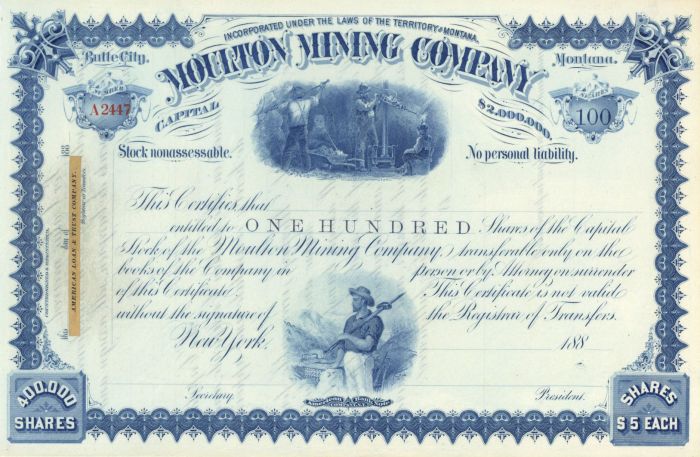 INCORPORATED UNDER THE LAWS OF THE TERRITORY OF MONTANA.
Butte City. Montana.
MOULTON MINING COMPANY
CAPITAL $2,000,000.
A2447
100
Stock nonassessable. No personal liability.
This Certifies that
entitled to ONE HUNDRED Shares of the Capital
Stock of the Moulton Mining Company, transferable only on the
books of the Company in person or by Attorney on surrender
of this Certificate. This Certificate is not valid
without the signature of the Registrar of Transfers.
New York. 188
Secretary. President.
400,000
SHARES
SHARES
$5 EACH
this day of 188
AMERICAN LOAN & TRUST COMPANY.
Registrar of Transfers.
COUNTERSIGNED & REGISTERED.